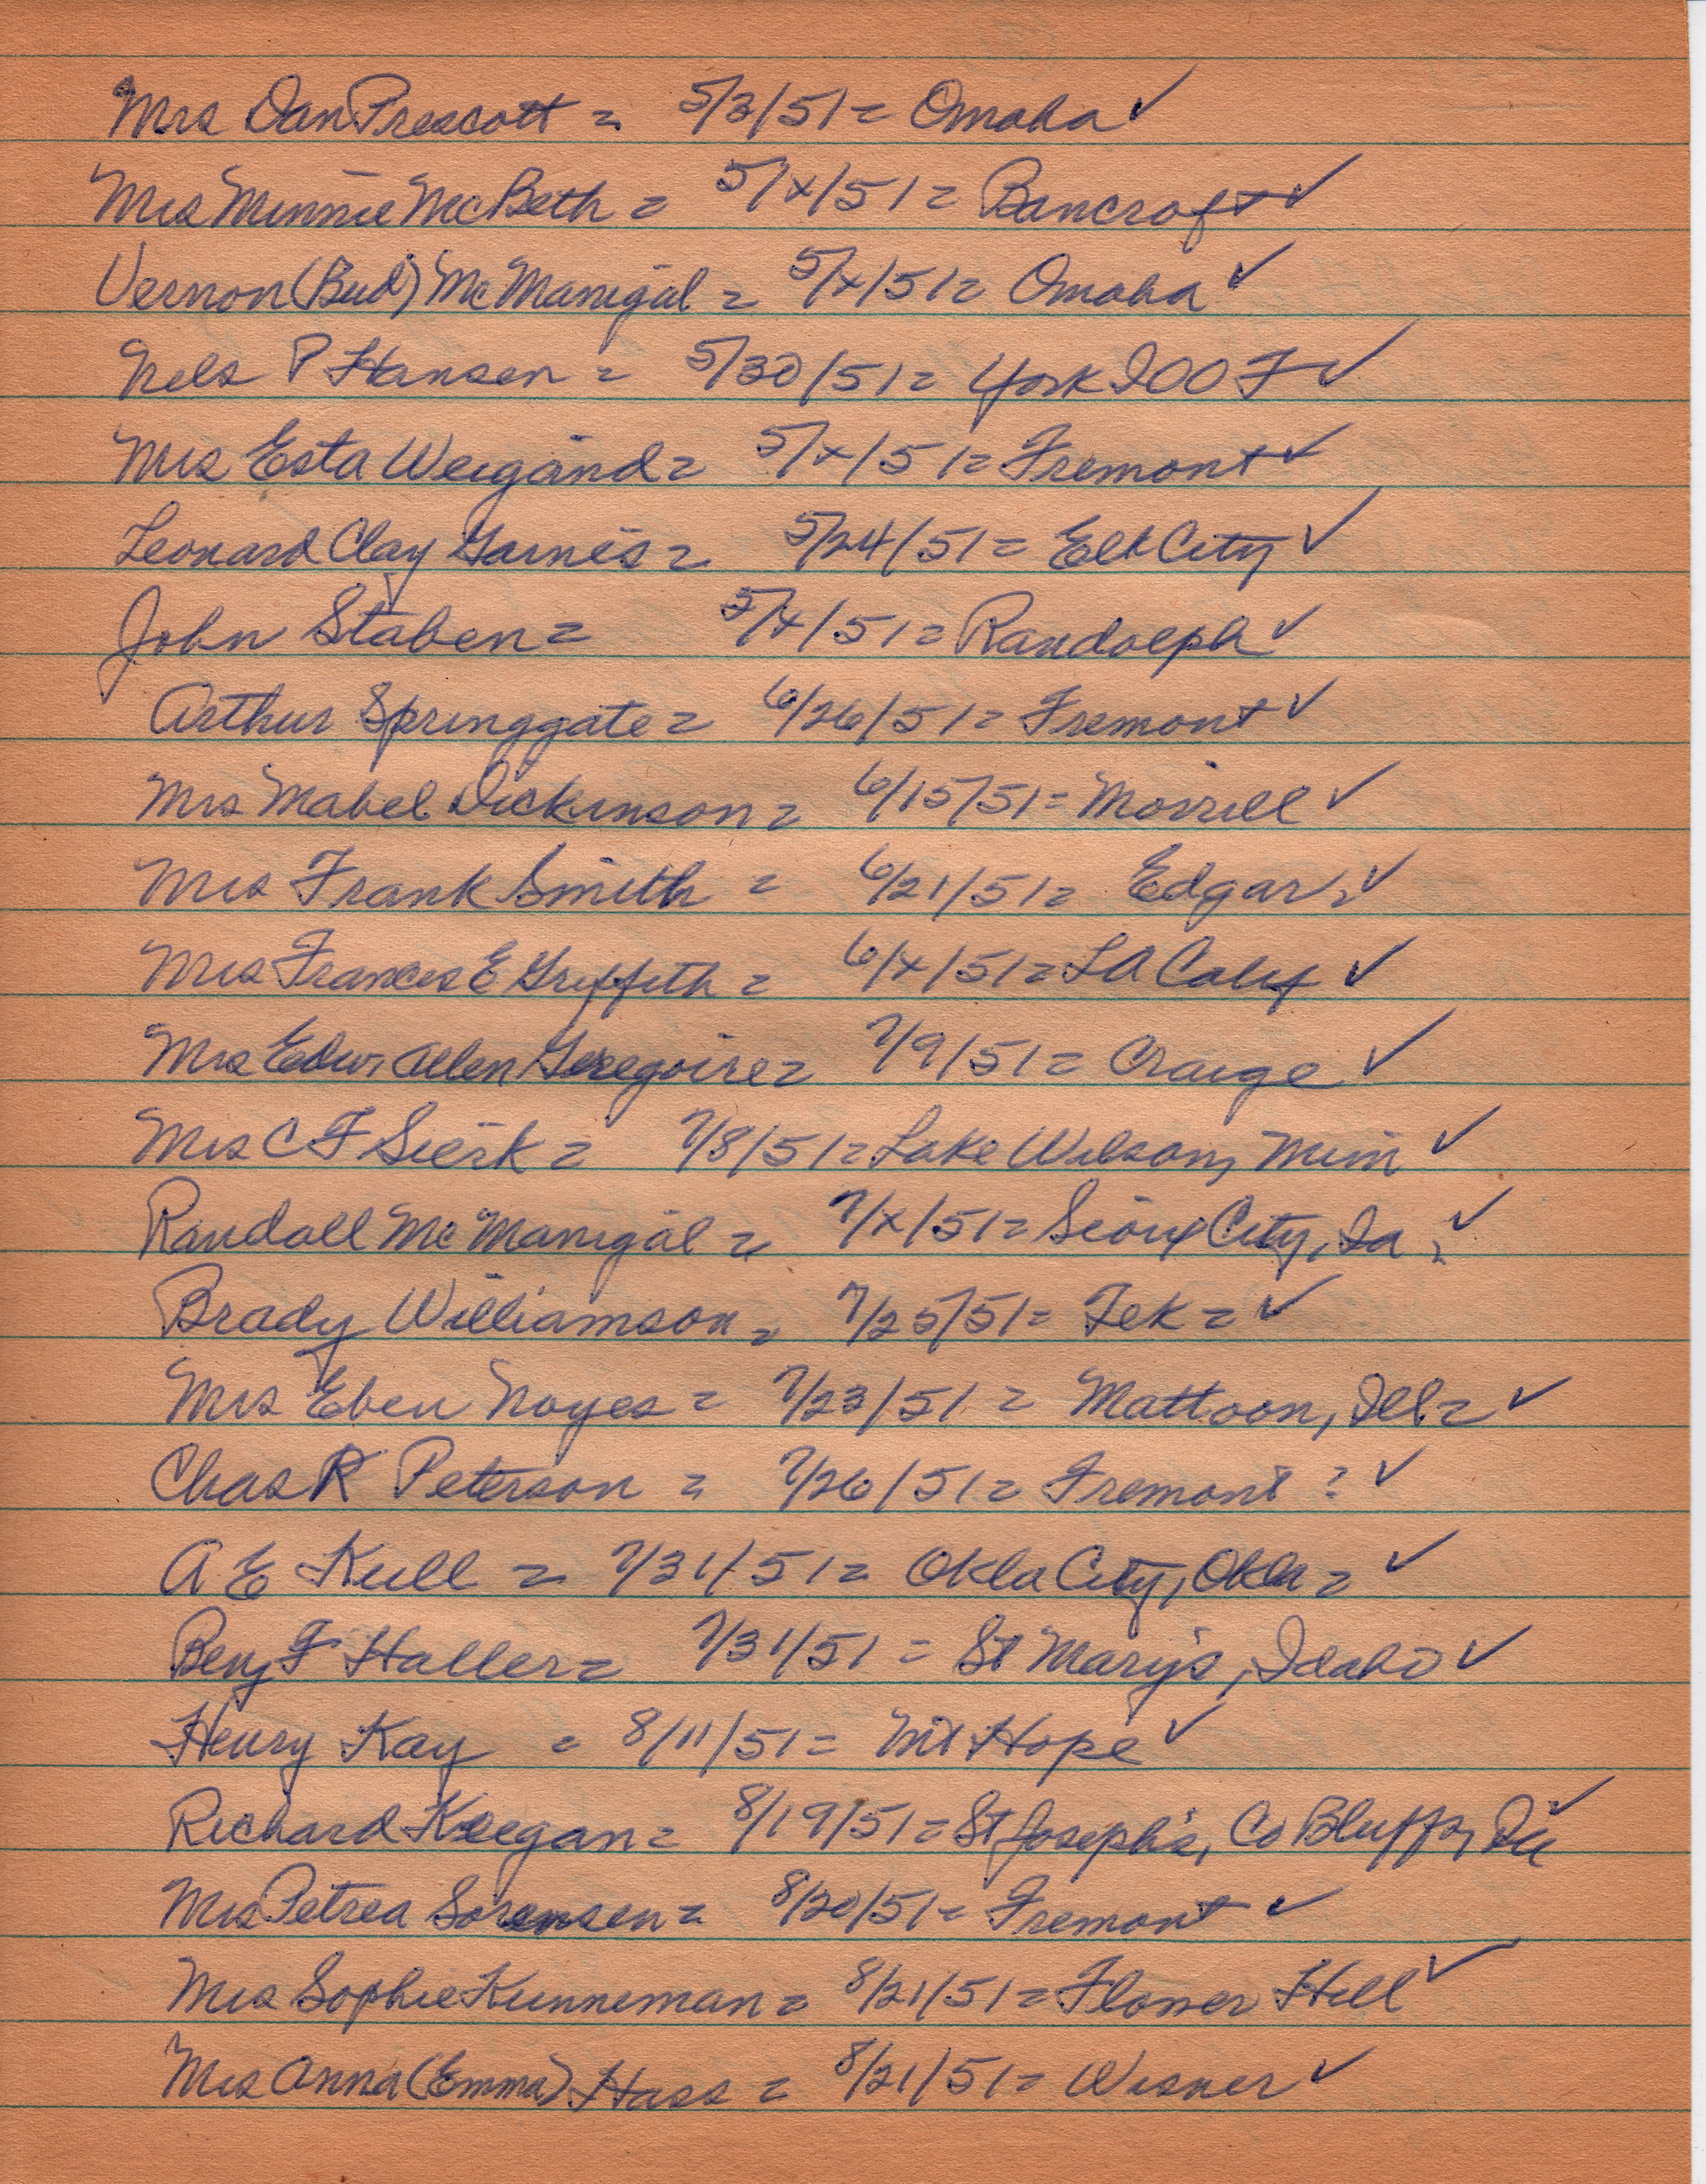 Mrs Dan Prescott = 5/3/51 = Omaha ✓
Mrs Minnie McBeth = 5/x/51 = Bancroft ✓
Vernon (Bud) McManigal = 5/x/51 = Omaha ✓
Nels P Hansen = 5/30/51 = York IOOF ✓
Mrs Esta Weigand = 5/x/51 = Fremont ✓
Leonard Clay Garnes = 5/24/51 = Elk City ✓
John Staben = 5/x/51 = Randolph ✓
Arthur Springgate = 6/26/51 = Fremont ✓
Mrs Mabel Dickinson = 6/15/51 = Morrill ✓
Mrs Frank Smith = 6/21/51 = Edgar = ✓
Mrs Frances E Griffith = 6/x/51 = LA Calif ✓
Mrs Edw. Allen Geregoire = 7/9/51 = Craige ✓
Mrs C F Sierk = 7/8/51 = Lake Wilson, Minn ✓
Randall McManigal = 7/x/51 = Sioux City, Ia = ✓
Brady Williamson = 7/25/51 = Tek = ✓
Mrs Eben Noyes = 7/23/51 = Mattoon, Ill = ✓
Chas R Peterson = 7/26/51 = Fremont ? ✓
A E Kull = 7/31/51 = Okla City, Okla = ✓
Benj F Haller = 7/31/51 = St Mary's, Idaho ✓
Henry Kay = 8/11/51 = Mt Hope ✓
Richard Keegan = 8/19/51 = St Joseph's, Co Bluffs, ✓
Mrs Petrea Sorensen = 8/20/51 = Fremont ✓
Mrs Sophie Kunneman = 8/21/51 = Flower Hill ✓
Mrs Anna (Emma) Hass = 8/21/51 = Wisner ✓